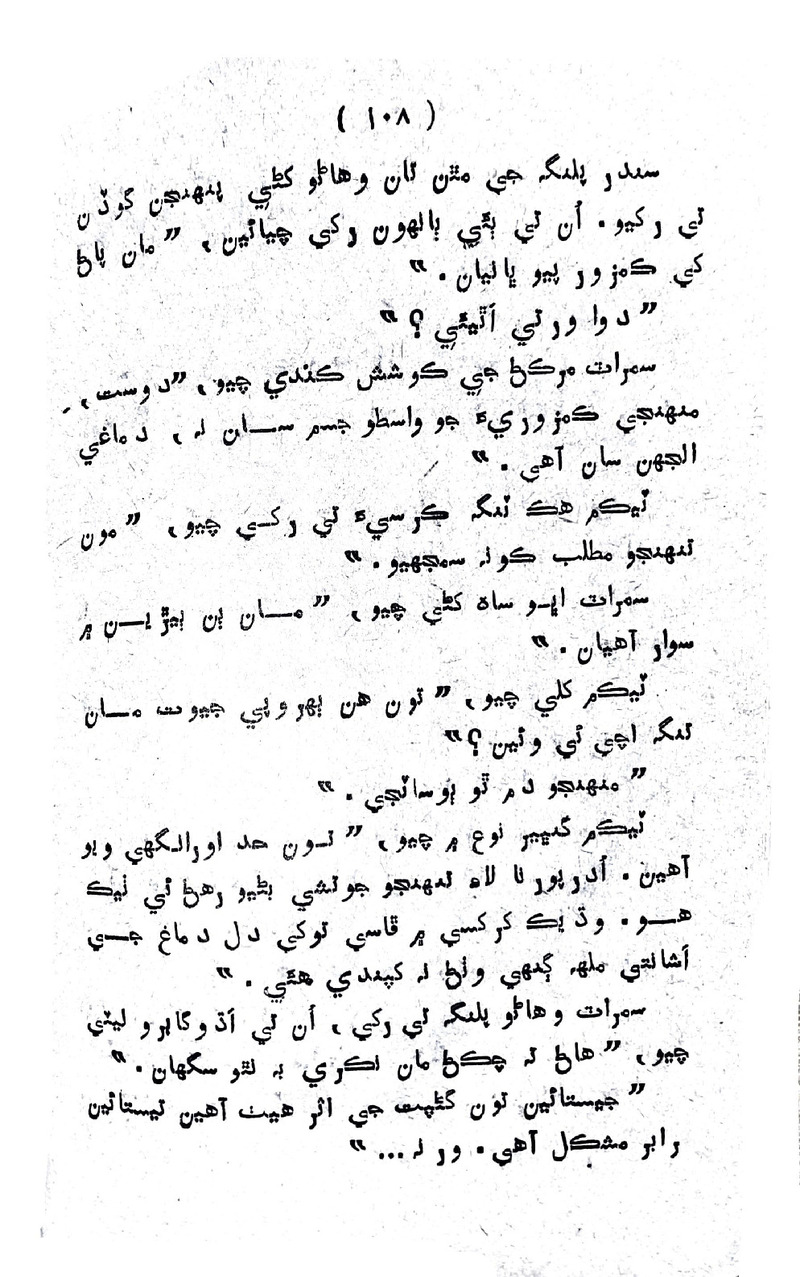 ( ١٠٨ )
سندر پلنگ جي مٿن تان وهاڻو کڻي پنهنجن گوڏن
تي رکيو. اُن تي ٻئي ٻانهون رکي چيائين، ”مان پاڻ
کي ڪمزور پيو ڀانيان.“
”دوا ورتي اٿيئي؟“
سمراٽ مرڪڻ جي ڪوشش ڪندي چيو، ”دوست،
منهنجي ڪمزوريءَ جو واسطو جسم ســـان نہ، دماغي
الجهن سان آهي.“
ٽيڪم هڪ ٽنگ ڪرسيءَ تي رکـي چيو، ”مون
تنهنجو مطلب ڪونہ سمجهيو.“
سمراٽ اڀـو ساھ کڻي چيو، ”مـــان ٻن ٻيڙيـــن ۾
سوار آهيان.“
ٽيڪم کلي چيو، ”تون هن بهروپي جيوت مـــان
تنگ اچي ٿي وئين؟“
”منهنجو دم ٿو ٻوساٽجي.“
ٽيڪم گنڀير نوع ۾ چيو، ”تـون حد اورانگهي ويو
آهين. اُدرپورنا لاءِ تنهنجو جوتشي بڻيو رهڻ ئي ٺيڪ
هـــو. وڌيڪ کرکسي ۾ ڦاسي توکي دل دماغ جـــي
اَشانتي ملهہ ڳنهي وٺڻ نہ کپندي هئي.“
سمراٽ وهاڻو پلنگ تي رکي، اُن تي اڌوگابرو ليٽي
چيو، ”هاڻ تہ چڪڻ مان نڪري بہ نٿو سگهان.“
”جيستائين تون گڻپت جي اثر هيٺ آهين تيستائين
رابر مشڪل آهي. ورنہ...“